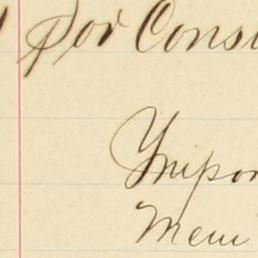 For Consu
Impor
Mem